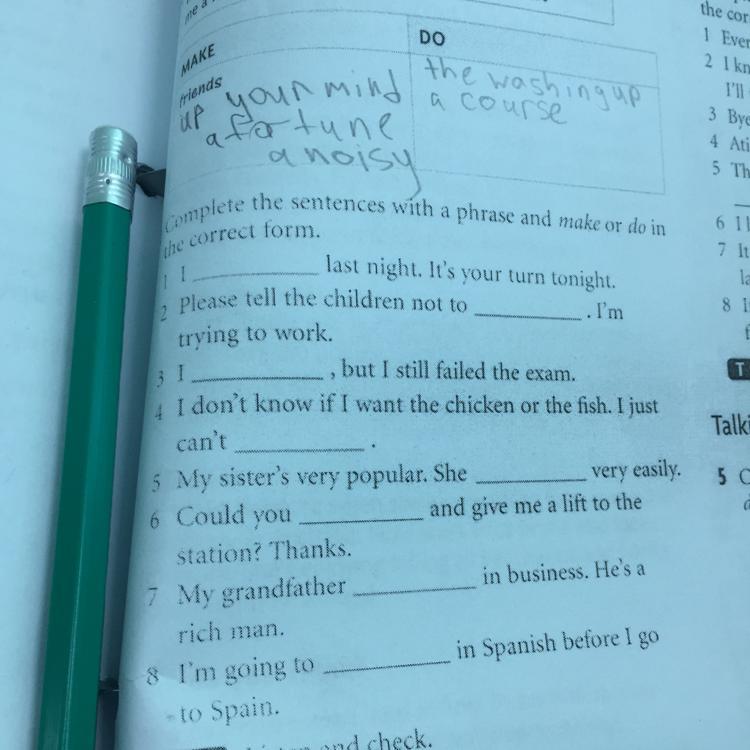 me a
MAKE
DO
friends
up your mind
a fortune
a noisy
the washing up
a course
Complete the sentences with a phrase and make or do in
the correct form.
1 I ____________ last night. It's your turn tonight.
2 Please tell the children not to ____________ . I'm
trying to work.
3 I ____________ , but I still failed the exam.
4 I don't know if I want the chicken or the fish. I just
can't ____________ .
5 My sister's very popular. She ____________ very easily.
6 Could you ____________ and give me a lift to the
station? Thanks.
7 My grandfather ____________ in business. He's a
rich man.
8 I'm going to ____________ in Spanish before I go
to Spain.
and check.
the cor
1 Ever
2 I kn
I'll
3 Bye
4 Ati
5 Th
6 I
7 It
la
8
T
Talki
5